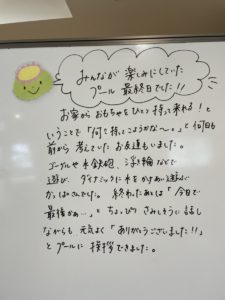 みんなが楽しみにしていた
プール最終日でした!!
お家からおもちゃをひとつ持って来れる!と
いうことで「何て持ってこようかな〜。」と何日も
前から考えていたお友達もいました。
ゴーグルや水鉄砲、浮輪などで
遊び、ダイナミックに水をかけあい遊ぶ
かっぱさんでした。終わったあとは「今日で
最後かぁ…」とちょっぴりさみしそうに話し
ながらも元気よく「ありがとうございました!!」
とプールに挨拶できました。